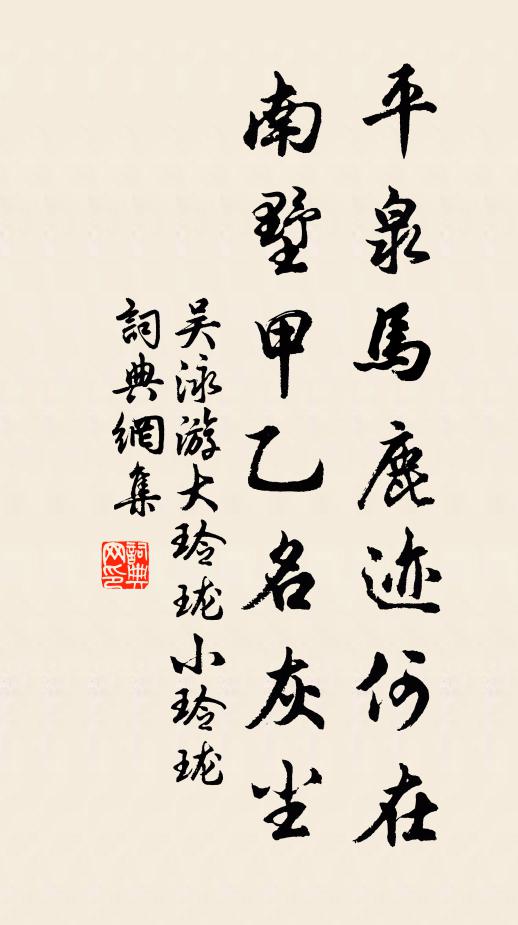 平泉馬鹿迹何在
南墅甲乙名灰尘
吴泳游大玲珑小玲珑
詞典網集
詞典网印